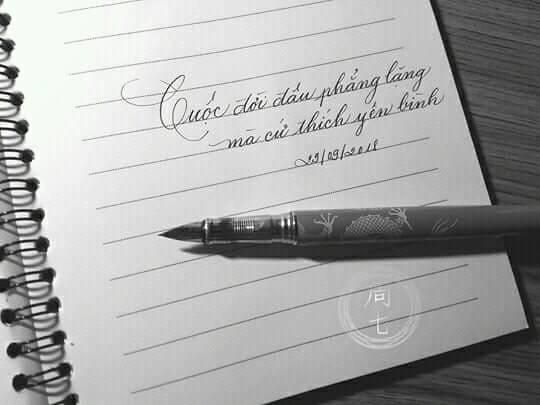 Cuốc đời đâu phẳng lặng
mà cứ thích yên bình
29/09/2018
周
七